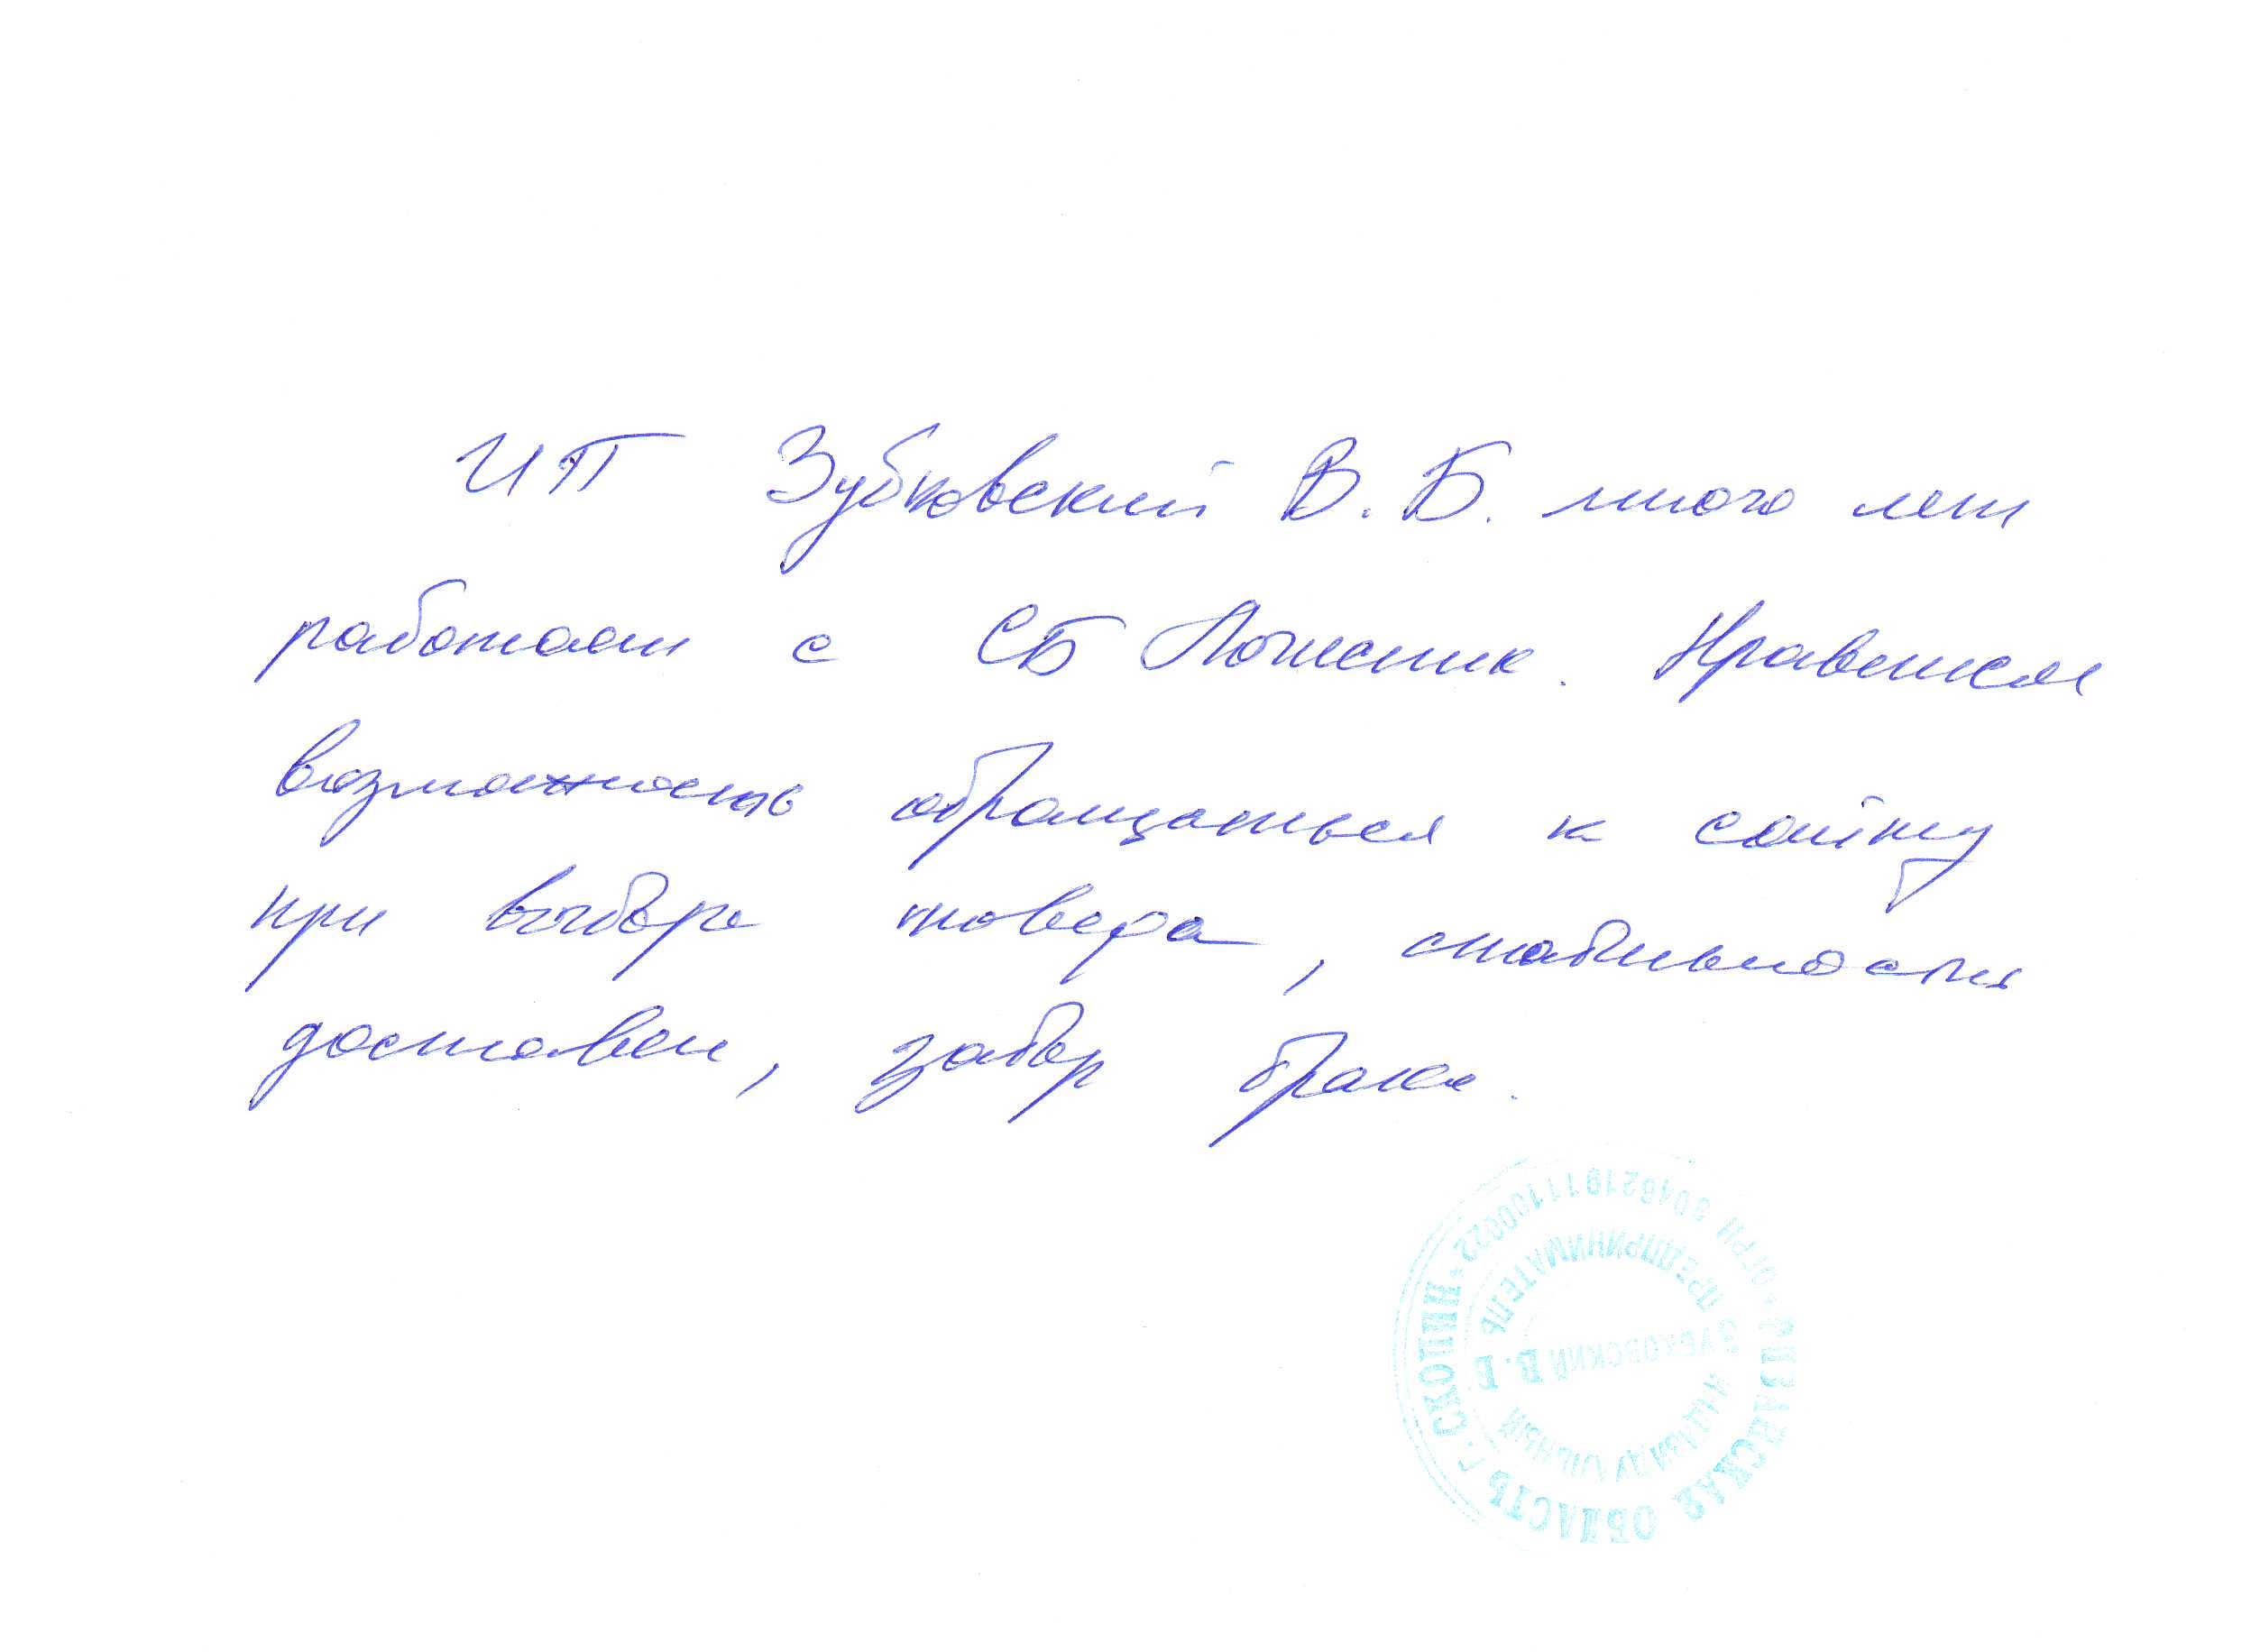 ИП Зубковский В. Б. много лет
работает с СБ Логистик. Нравится
возможность обращаться к сайту
при выборе товара, стабильность
доставки, забор брака.
РЯЗАНСКАЯ ОБЛАСТЬ г. СКОПИН * ОГРН 304621911100022 *
ИНДИВИДУАЛЬНЫЙ ПРЕДПРИНИМАТЕЛЬ
ЗУБКОВСКИЙ В. Б